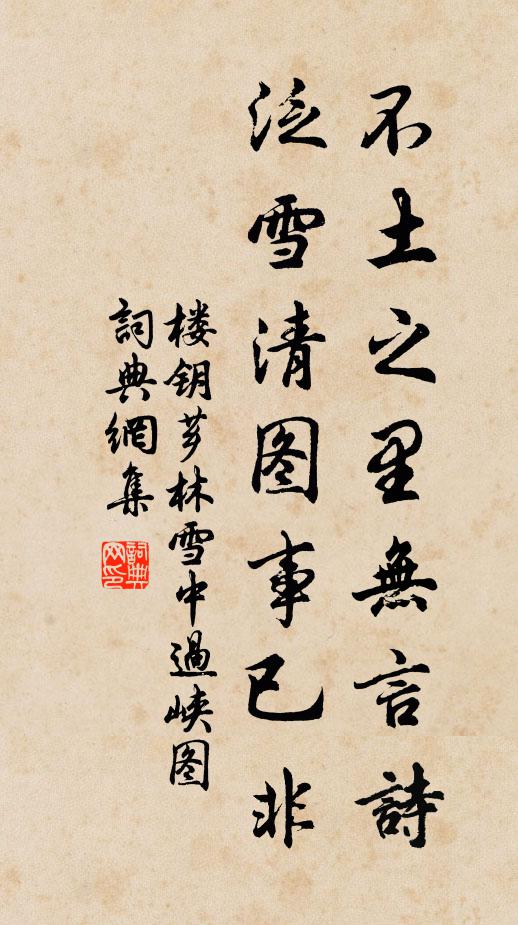 不土之里無言詩
泛雪清图事已非
楼钥芗林雪中過峡图
詞典網集
詞典網印